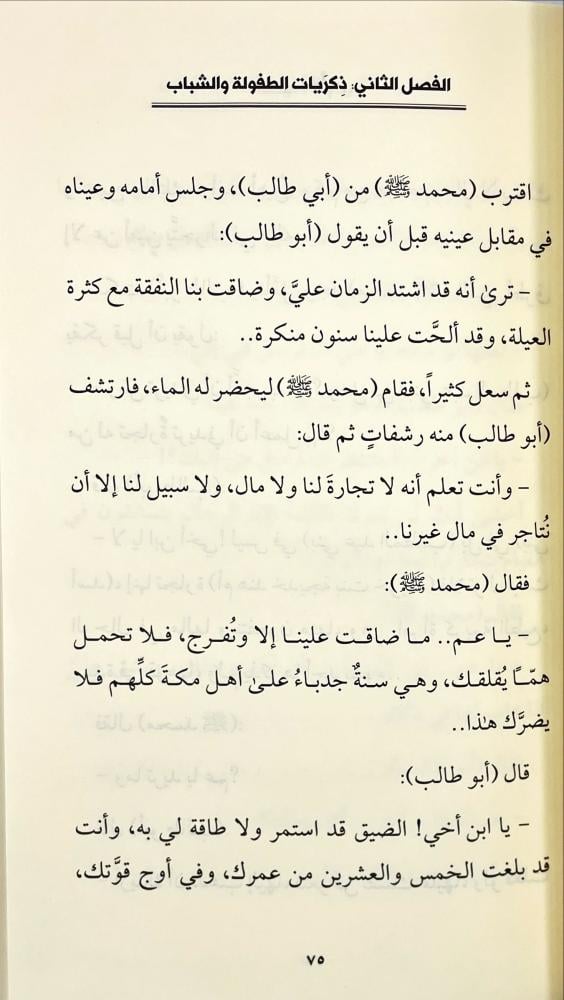 الفصل الثاني: ذِكرَيات الطفولة والشباب
اقترب (محمد ﷺ) من (أبي طالب)، وجلس أمامه وعيناه
في مقابل عينيه قبل أن يقول (أبو طالب):
- ترىٰ أنه قد اشتد الزمان عليَّ، وضاقت بنا النفقة مع كثرة
العيلة، وقد ألحَّت علينا سنون منكرة..
ثم سعل كثيراً، فقام (محمد ﷺ) ليحضر له الماء، فارتشف
(أبو طالب) منه رشفاتٍ ثم قال:
- وأنت تعلم أنه لا تجارةَ لنا ولا مال، ولا سبيل لنا إلا أن
نُتاجر في مال غيرنا..
فقال (محمد ﷺ):
- يا عم.. ما ضاقت علينا إلا وتُفرج، فلا تحمل
همّاً يُقلقك، وهي سنةٌ جدباءُ علىٰ أهل مكةَ كلِّهم فلا
يضرَّك هٰذا..
قال (أبو طالب):
- يا ابن أخي! الضيق قد استمر ولا طاقة لي به، وأنت
قد بلغت الخمس والعشرين من عمرك، وفي أوج قوَّتك،
٧٥